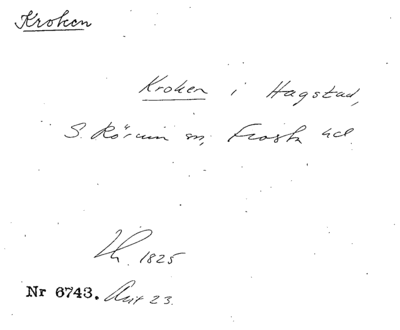 Kroken
Kroken i Hagstad,
S. Rörum sn, Frosta hd.
1825
Nr 6743. Akt 23.